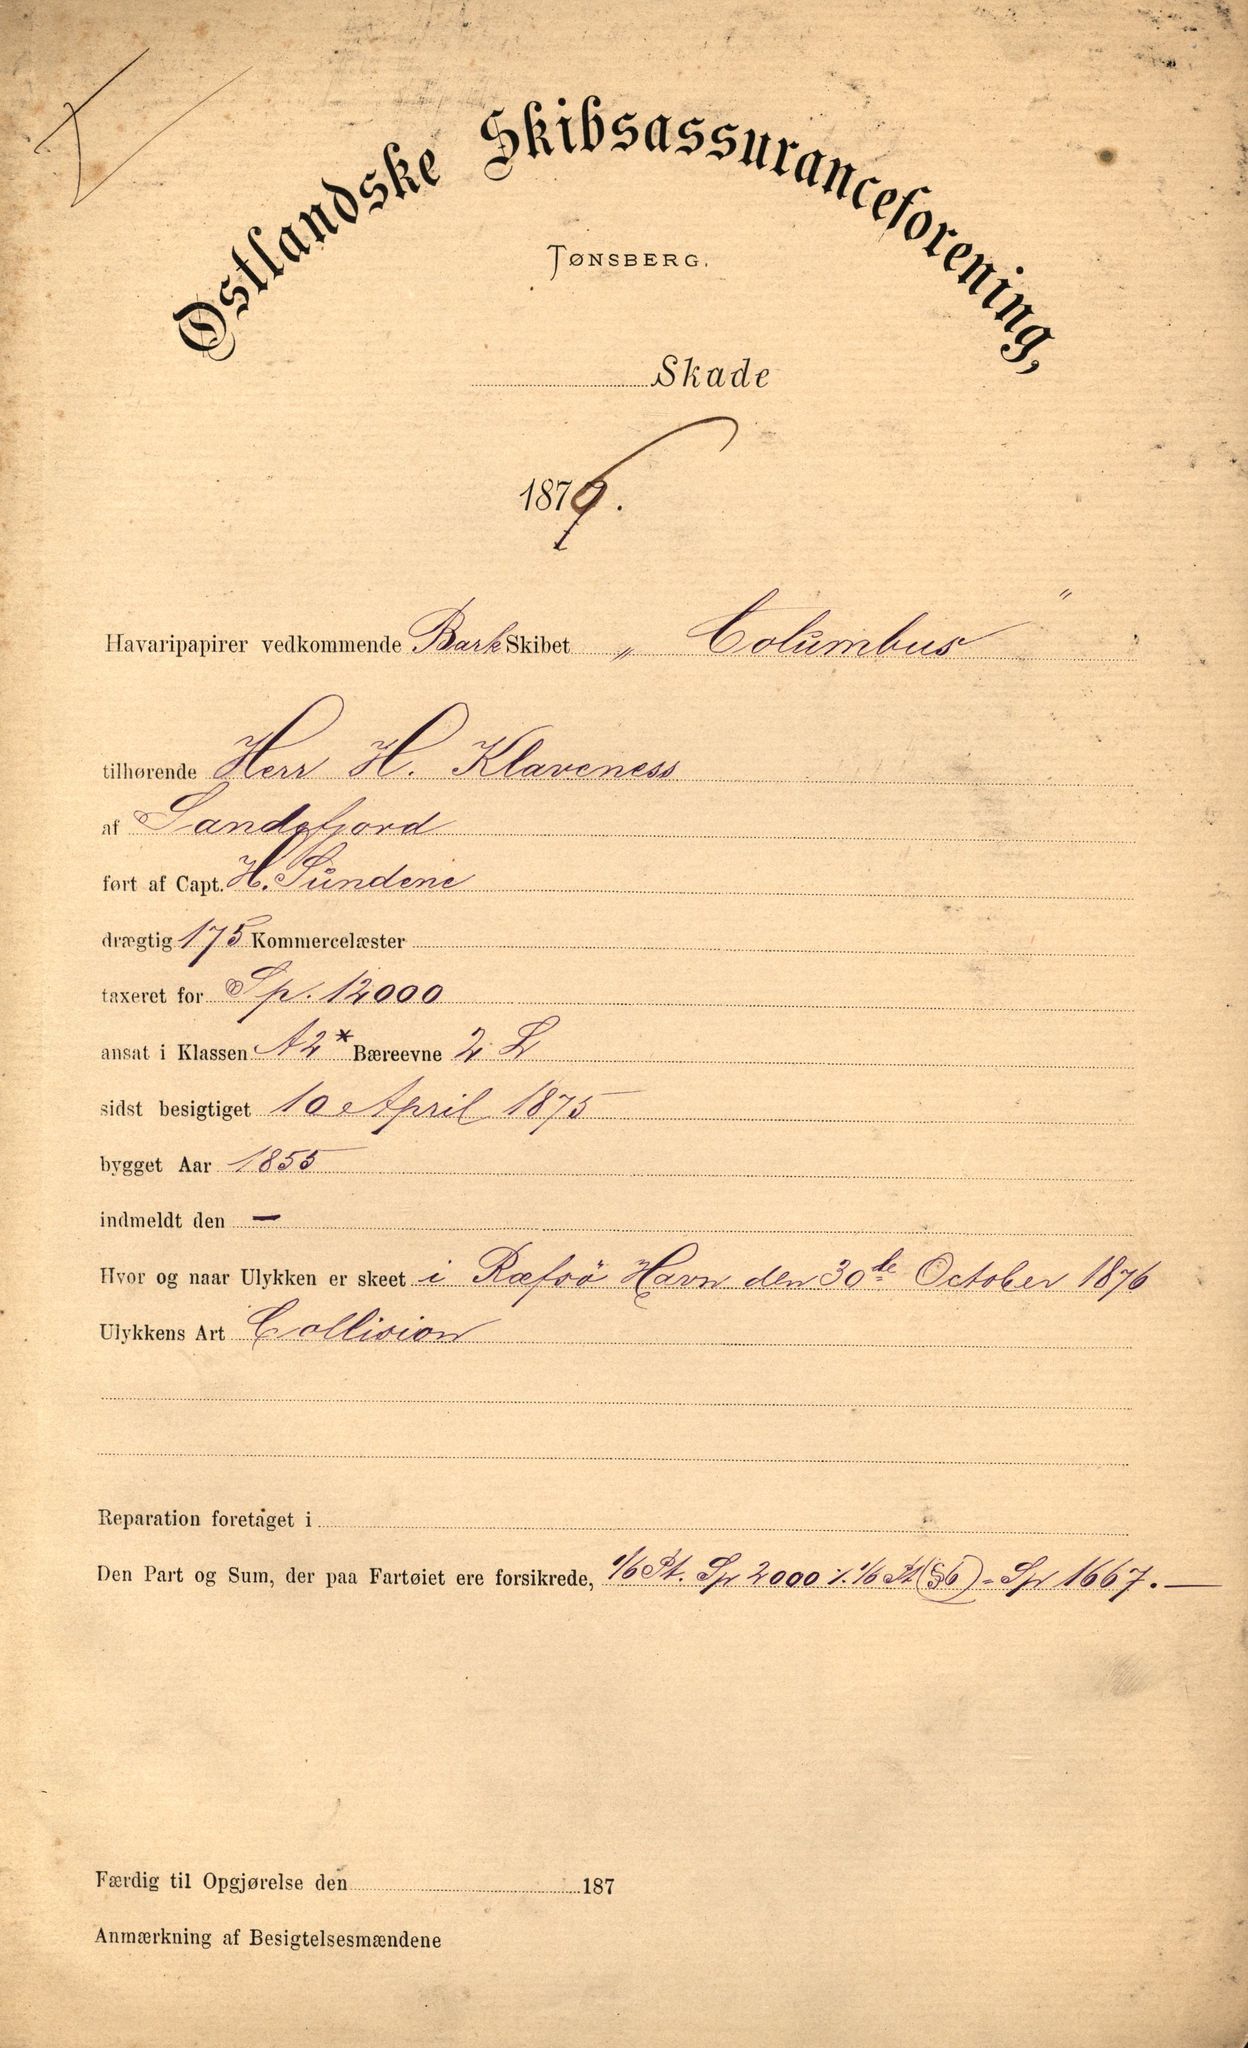 Østlandske Skibsassuranceforening,
TØNSBERG.
Skade
1876.
Havaripapirer vedkommende Bark Skibet „ Columbus "
tilhørende Herr H. Klaveness
af Sandefjord
ført af Capt. H. Sundene
drægtig 175 Kommercelæster
taxeret for Sp. 12000
ansat i Klassen A2* Bæreevne 2 L
sidst besigtiget 10 April 1875
bygget Aar 1855
indmeldt den —
Hvor og naar Ulykken er skeet i Ræfsö Havn den 30te October 1876
Ulykkens Art Collision
Reparation foretaget i
Den Part og Sum, der paa Fartøiet ere forsikrede, 1/6 Pt. Sp 2000 ./. 1/6 Pt (§6) = Sp 1667. —
Færdig til Opgjørelse den 187
Anmærkning af Besigtelsesmændene